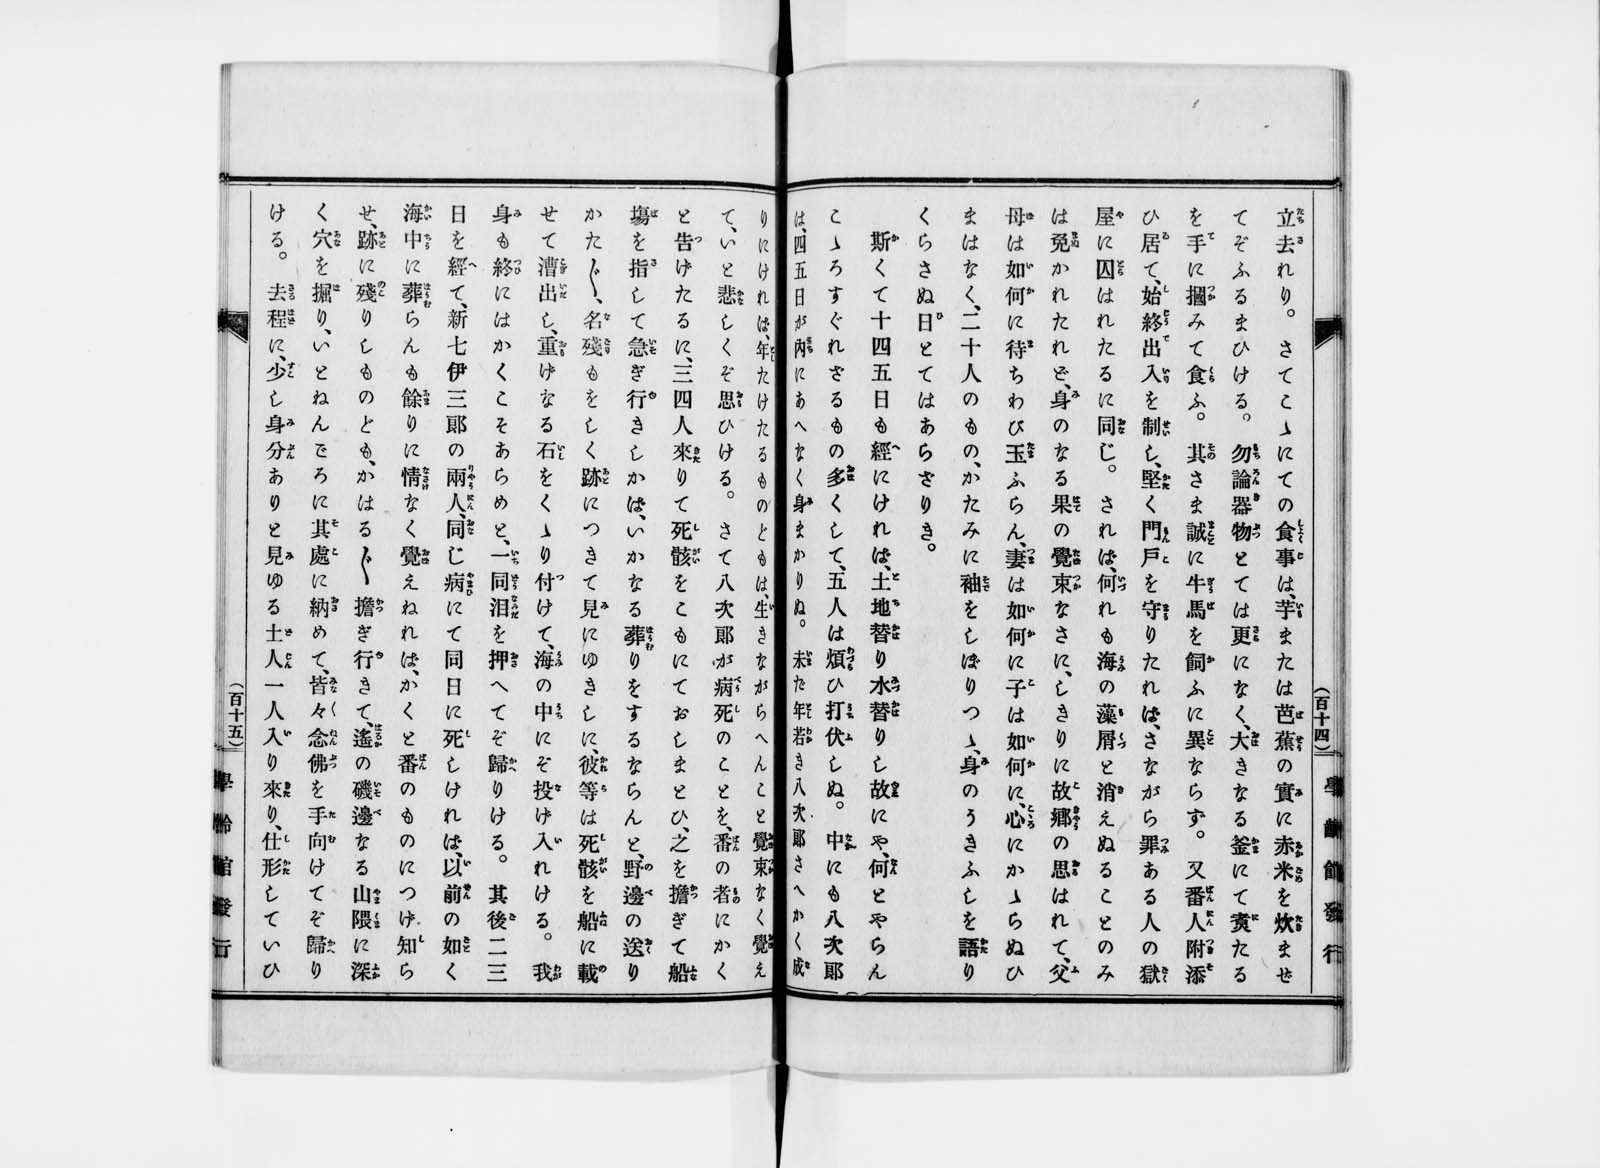 立去れり。さてこゝにての食事は、芋または芭蕉の實に赤米を炊ませ
てぞふるまひける。勿論器物とては更になく、大きなる釜にて煑たる
を手に摑みて食ふ。其さま誠に牛馬を飼ふに異ならず。又番人附添
ひ居て、始終出入を制し、堅く門戸を守りたれば、さながら罪ある人の獄
屋に囚はれたるに同じ。されば、何れも海の藻屑と消えぬることのみ
は免かれたれど、身のなる果の覺束なさに、しきりに故郷の思はれて、父
母は如何に待ちわび玉ふらん、妻は如何に子は如何に、心にかゝらぬひ
まはなく、二十人のもの、かたみに袖をしぼりつゝ、身のうきふしを語り
くらさぬ日とてはあらざりき。
斯くて十四五日も經にければ、土地替り水替りし故にや、何とやらん
こゝろすぐれざるもの多くして、五人は煩ひ打伏しぬ。中にも八次郞
は、四五日が內にあへなく身まかりぬ。未た年若き八次郞さへかく成
りにければ、年たけたるものどもは、生きながらへんこと覺束なく覺え
て、いと悲しくぞ思ひける。さて八次郞が病死のことを、番の者にかく
と告げたるに、三四人來りて死骸をこもにておしまとひ、之を擔ぎて船
塲を指して急ぎ行きしかば、いかなる葬りをするならんと、野邊の送り
かた〴〵、名殘もをしく跡につきて見にゆきしに、彼等は死骸を船に載
せて漕出し、重げなる石をくゝり付けて、海の中にぞ投げ入れける。我
身も終にはかくこそあらめと、一同泪を押へてぞ歸りける。其後二三
日を經て、新七伊三郞の兩人、同じ病にて同日に死しければ、以前の如く
海中に葬らんも餘りに情なく覺えねれば、かくと番のものにつげ知ら
せ、跡に殘りしものども、かはる〴〵擔ぎ行きて、遙の磯邊なる山隈に深
く穴を掘り、いとねんごろに其處に納めて、皆々念佛を手向けてぞ歸り
ける。去程に、少し身分ありと見ゆる士人一人入り來り、仕形していひ
(百十四)
學齡館發行
(百十五)
學齡館發行